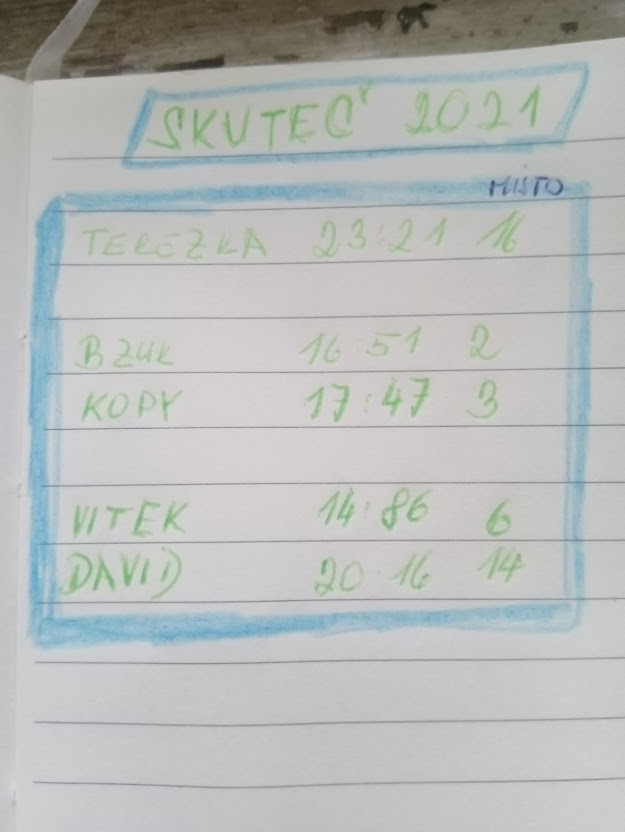 SKUTEČ 2021
MÍSTO
TEREZKA 23:21 16
BZUK 16 51 2
KOPY 17:47 3
VITEK 14:86 6
DAVID 20 16 14